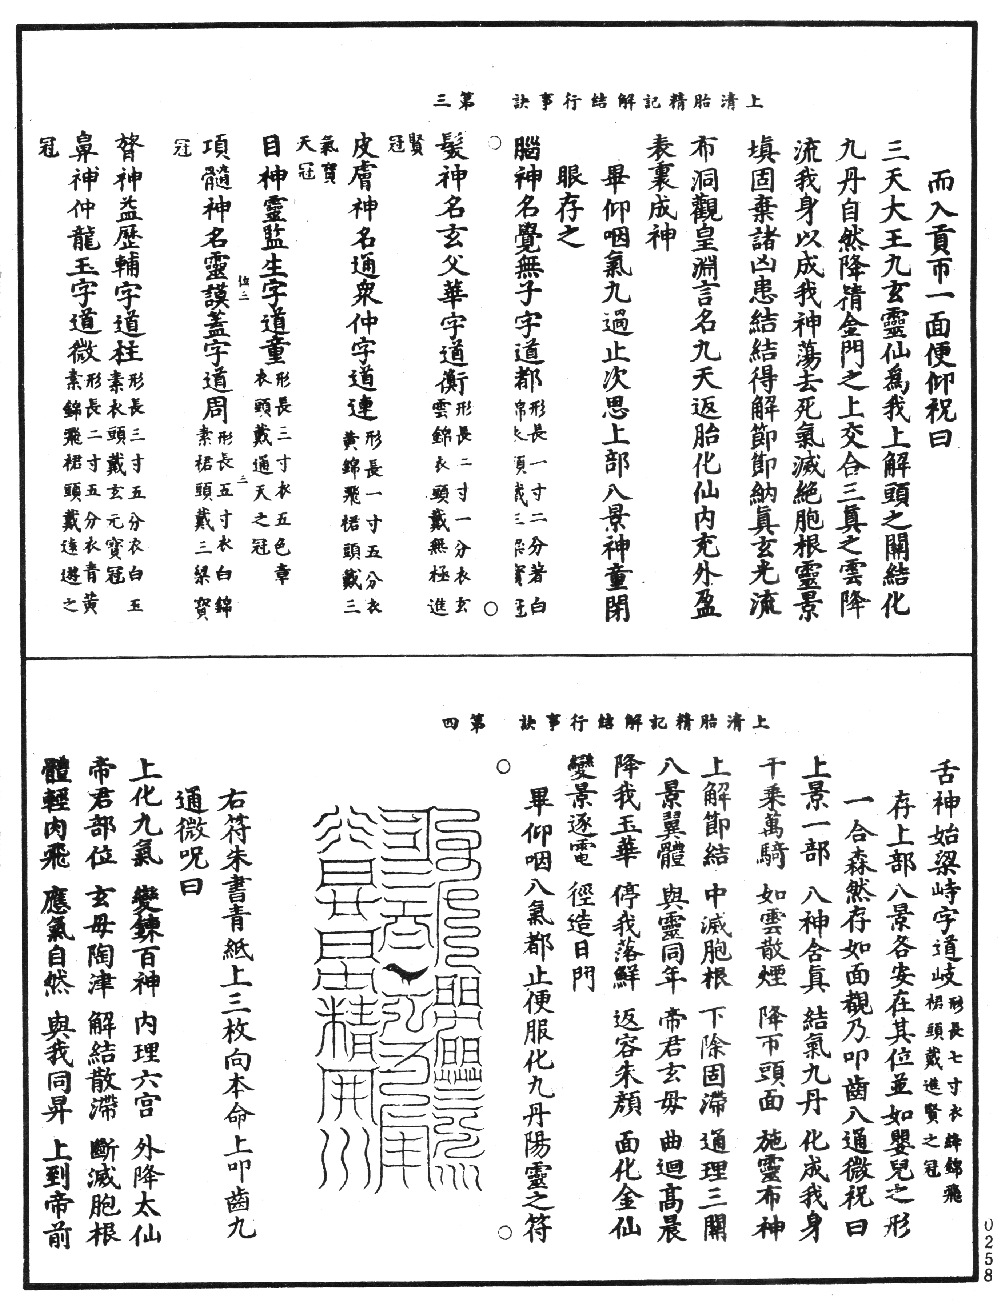 上清胎精記解結行事訣　第三
而入貢帀一面便仰祝曰
三天大王九玄靈仙為我上解頭之關結化
九丹自然降精金門之上交合三真之雲降
流我身以成我神蕩去死氣滅絕胞根靈景
填固棄諸凶患結結得解節節納真玄光流
布洞觀皇淵言名九天返胎化仙内充外盈
表裏成神
畢仰咽氣九過止次思上部八景神童閉
眼存之
腦神名覺無子字道都形長一寸二分著白
錦衣頭戴三梁寶冠
髮神名玄父華字道衡形長二寸一分衣玄
雲錦衣頭戴無極進
賢冠
皮膚神名通衆仲字道連形長一寸五分衣
黃錦飛裙頭戴三
氣寶天冠
目神靈監生字道童形長三寸衣五色章
衣頭戴通天之冠
位二
項髓神名靈謨蓋字道周形長五寸衣白錦
素裙頭戴三梁賀
冠
三
膂神益歷輔字道柱形長三寸五分衣白玉
素衣頭戴玄元寶冠
鼻神仲龍玉字道微形長二寸五分衣青黃
素錦飛裙頭戴遠遊之
冠
上清胎精記解結行事訣　第四
舌神始梁峙字道岐形長七寸衣絳錦飛
裙頭戴進賢之冠
存上部八景各安在其位並如嬰兒之形
一合森然存如面覩乃叩齒八通微祝曰
上景一部　八神舍真　結氣九丹　化成我身
千乘萬騎　如雲散煙　降帀頭面　施靈布神
上解節結　中滅胞根　下除固滯　通理三關
八景翼體　與靈同年　帝君玄母　曲迴高晨
降我玉華　停我落鮮　返容朱顏　面化金仙
變景逐電　徑造日門
畢仰咽八氣都止便服化九丹陽靈之符
右符朱書青紙上三枚向本命上叩齒九
通微呪曰
上化九氣　變鍊百神　内理六宫　外降太仙
帝君部位　玄母陶津　解結散滯　斷滅胞根
體輕肉飛　應氣自然　與我同昇　上到帝前
0258